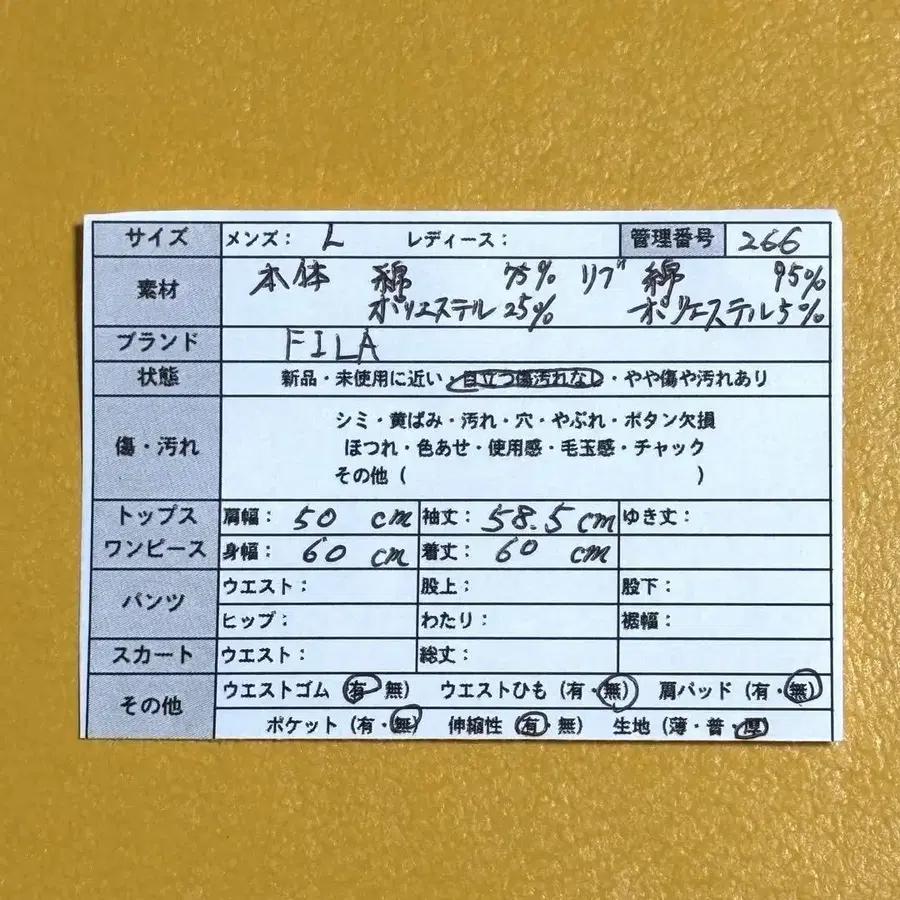 サイズ メンズ： L レディース： 管理番号 266
素材 本体 綿 75% リブ 綿 95%
ポリエステル 25% ポリエステル 5%
ブランド FILA
状態 新品・未使用に近い・目立つ傷汚れなし・やや傷や汚れあり
傷・汚れ シミ・黄ばみ・汚れ・穴・やぶれ・ボタン欠損
ほつれ・色あせ・使用感・毛玉感・チャック
その他（ ）
トップス 肩幅： 50 cm 袖丈： 58.5 cm ゆき丈：
ワンピース 身幅： 60 cm 着丈： 60 cm
パンツ ウエスト： 股上： 股下：
ヒップ： わたり： 裾幅：
スカート ウエスト： 総丈：
その他 ウエストゴム（有・無） ウエストひも（有・無） 肩パッド（有・無）
ポケット（有・無） 伸縮性（有・無） 生地（薄・普・厚）